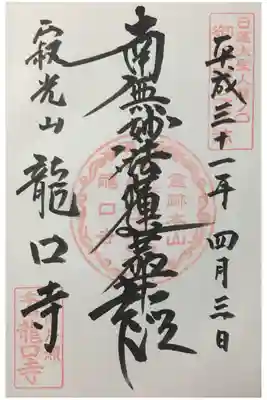 平成三十一年四月三日
南無妙法蓮華経
寂光山龍口寺
霊跡本山
龍口寺
龍口寺